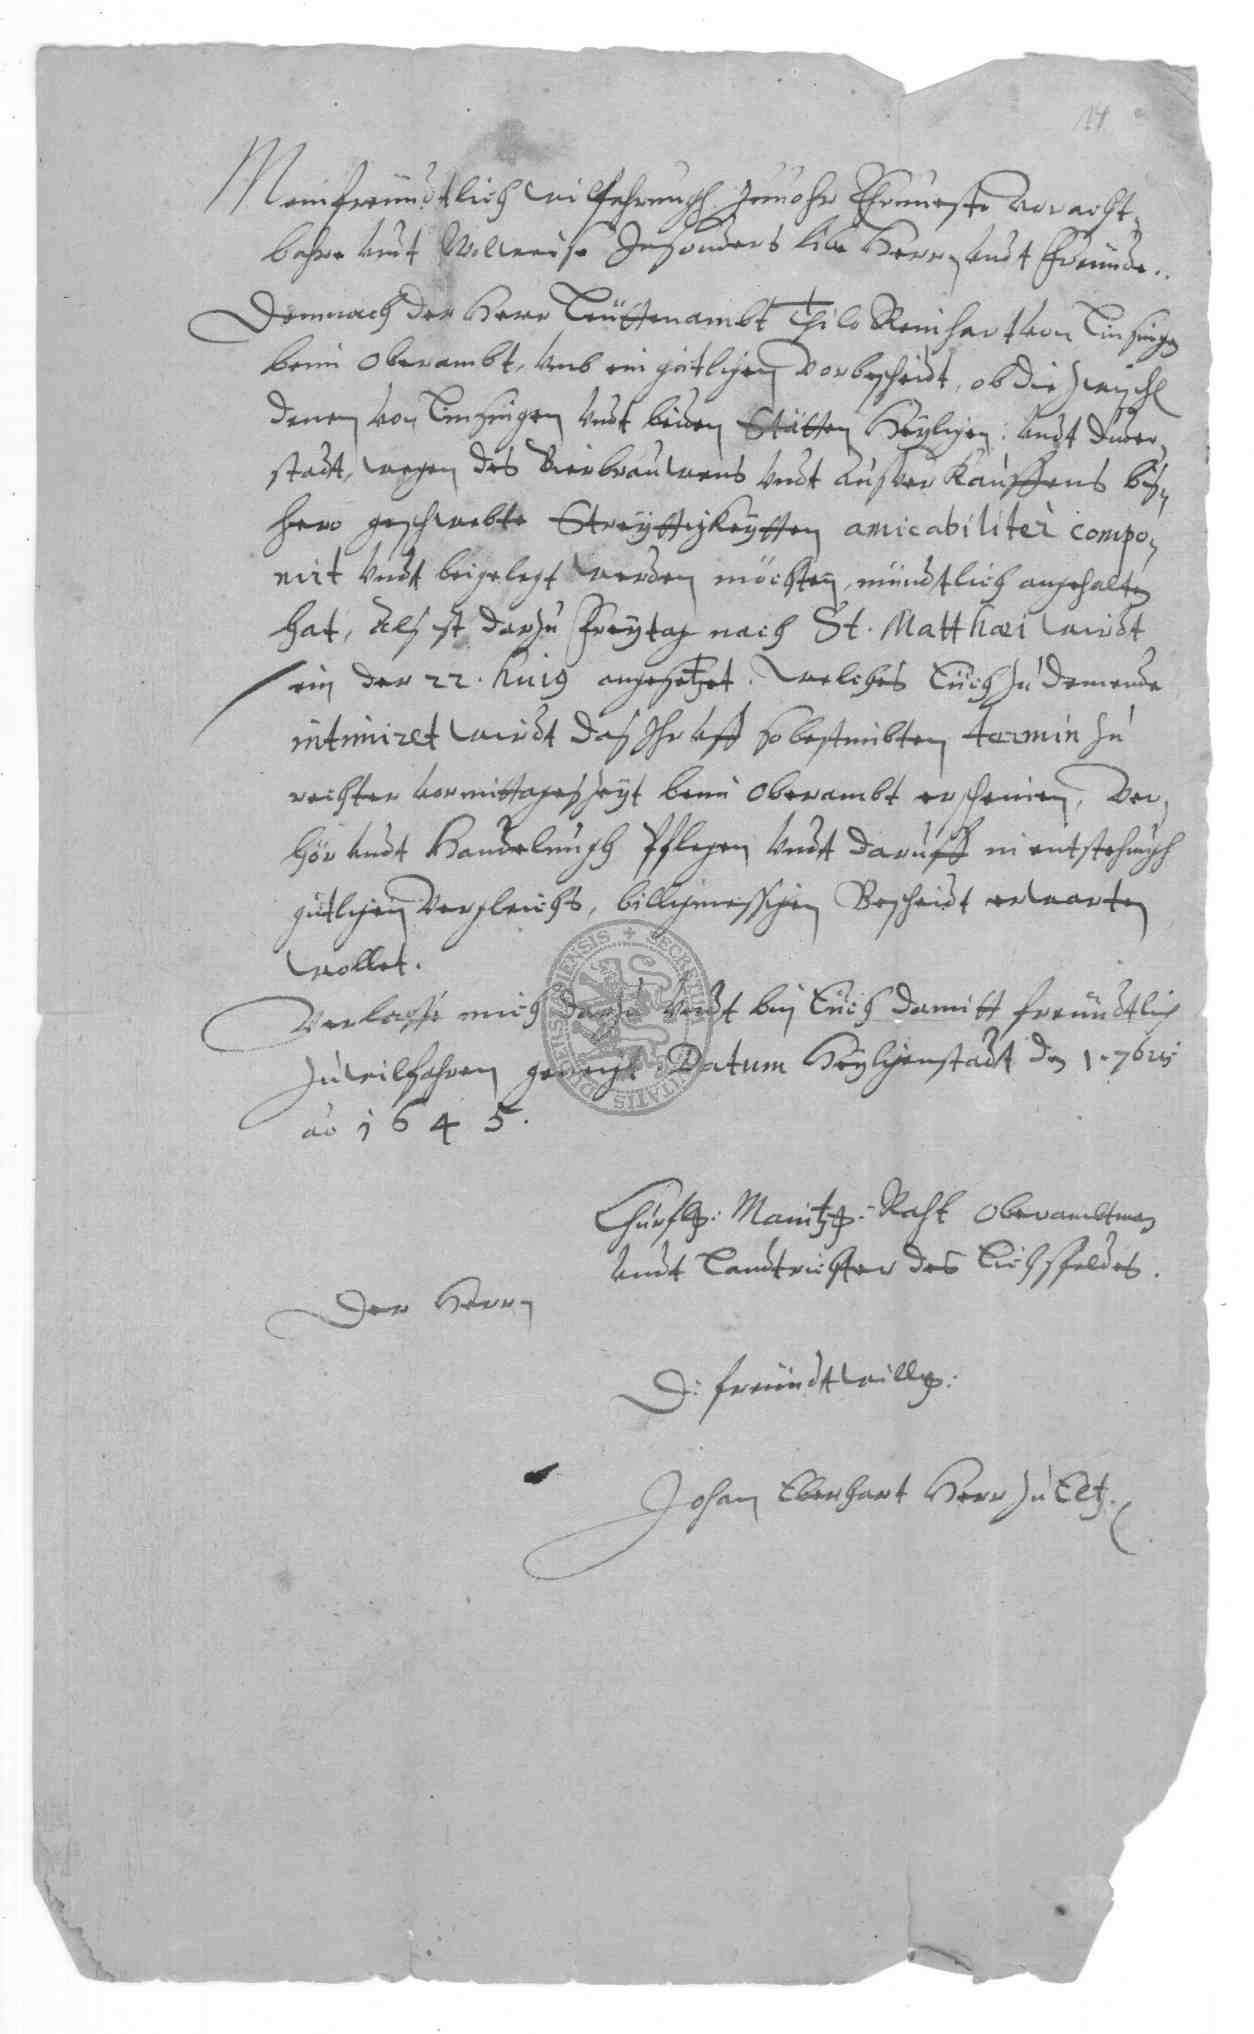 14
Mein freündtlich wilfahrungh zuuohr Ehrnueste voracht-
bahre vndt Wollweise Insonders liebe Herrn vndt Freünde..
Demnach der Herr Leüttenambt Thilo Reinhart von Linsingen
beim Oberambt, vmb ein gütlichen Vorbescheidt, ob die zwischen
denen von Linsingen vndt beiden Stätten Heyligen: vndt Duder-
stadt, wegen des Bierbrauwens vndt Ausverkauffens biß-
hero geschwebte Streyttigkeytten amicabiliter compo-
nirt vndt beigelegt werden möchten, mündtlich angehalten
hat, Alß ist darzu Freytag nach St. Matthæi wirdt
ein der 22. huig angesetzet. welches Eüch zu dem ende
intimiret wirdt daß Ihr vff so bestimbten termin zu
rechter vormittageszeyt beim Oberambt erscheinen, Ver-
hör vndt Handelungh Pflegen vndt daruff in entstehungh
gütlichen Vergleichs, billigmessigen Bescheidt erwarten
wollet.
Verlasse mich darzu vndt bin Eüch damitt freündtlich
zu wilfahren geneigt. Datum Heyligenstadt den 1. 7bris
ao 1645.
Churfl: Maintz: Raht Oberambtman
vndt Landtrichter des Eichsfeldes.
Der Herrn
D: freündtwillg:
Johan Eberhart Herr zu Eltz.